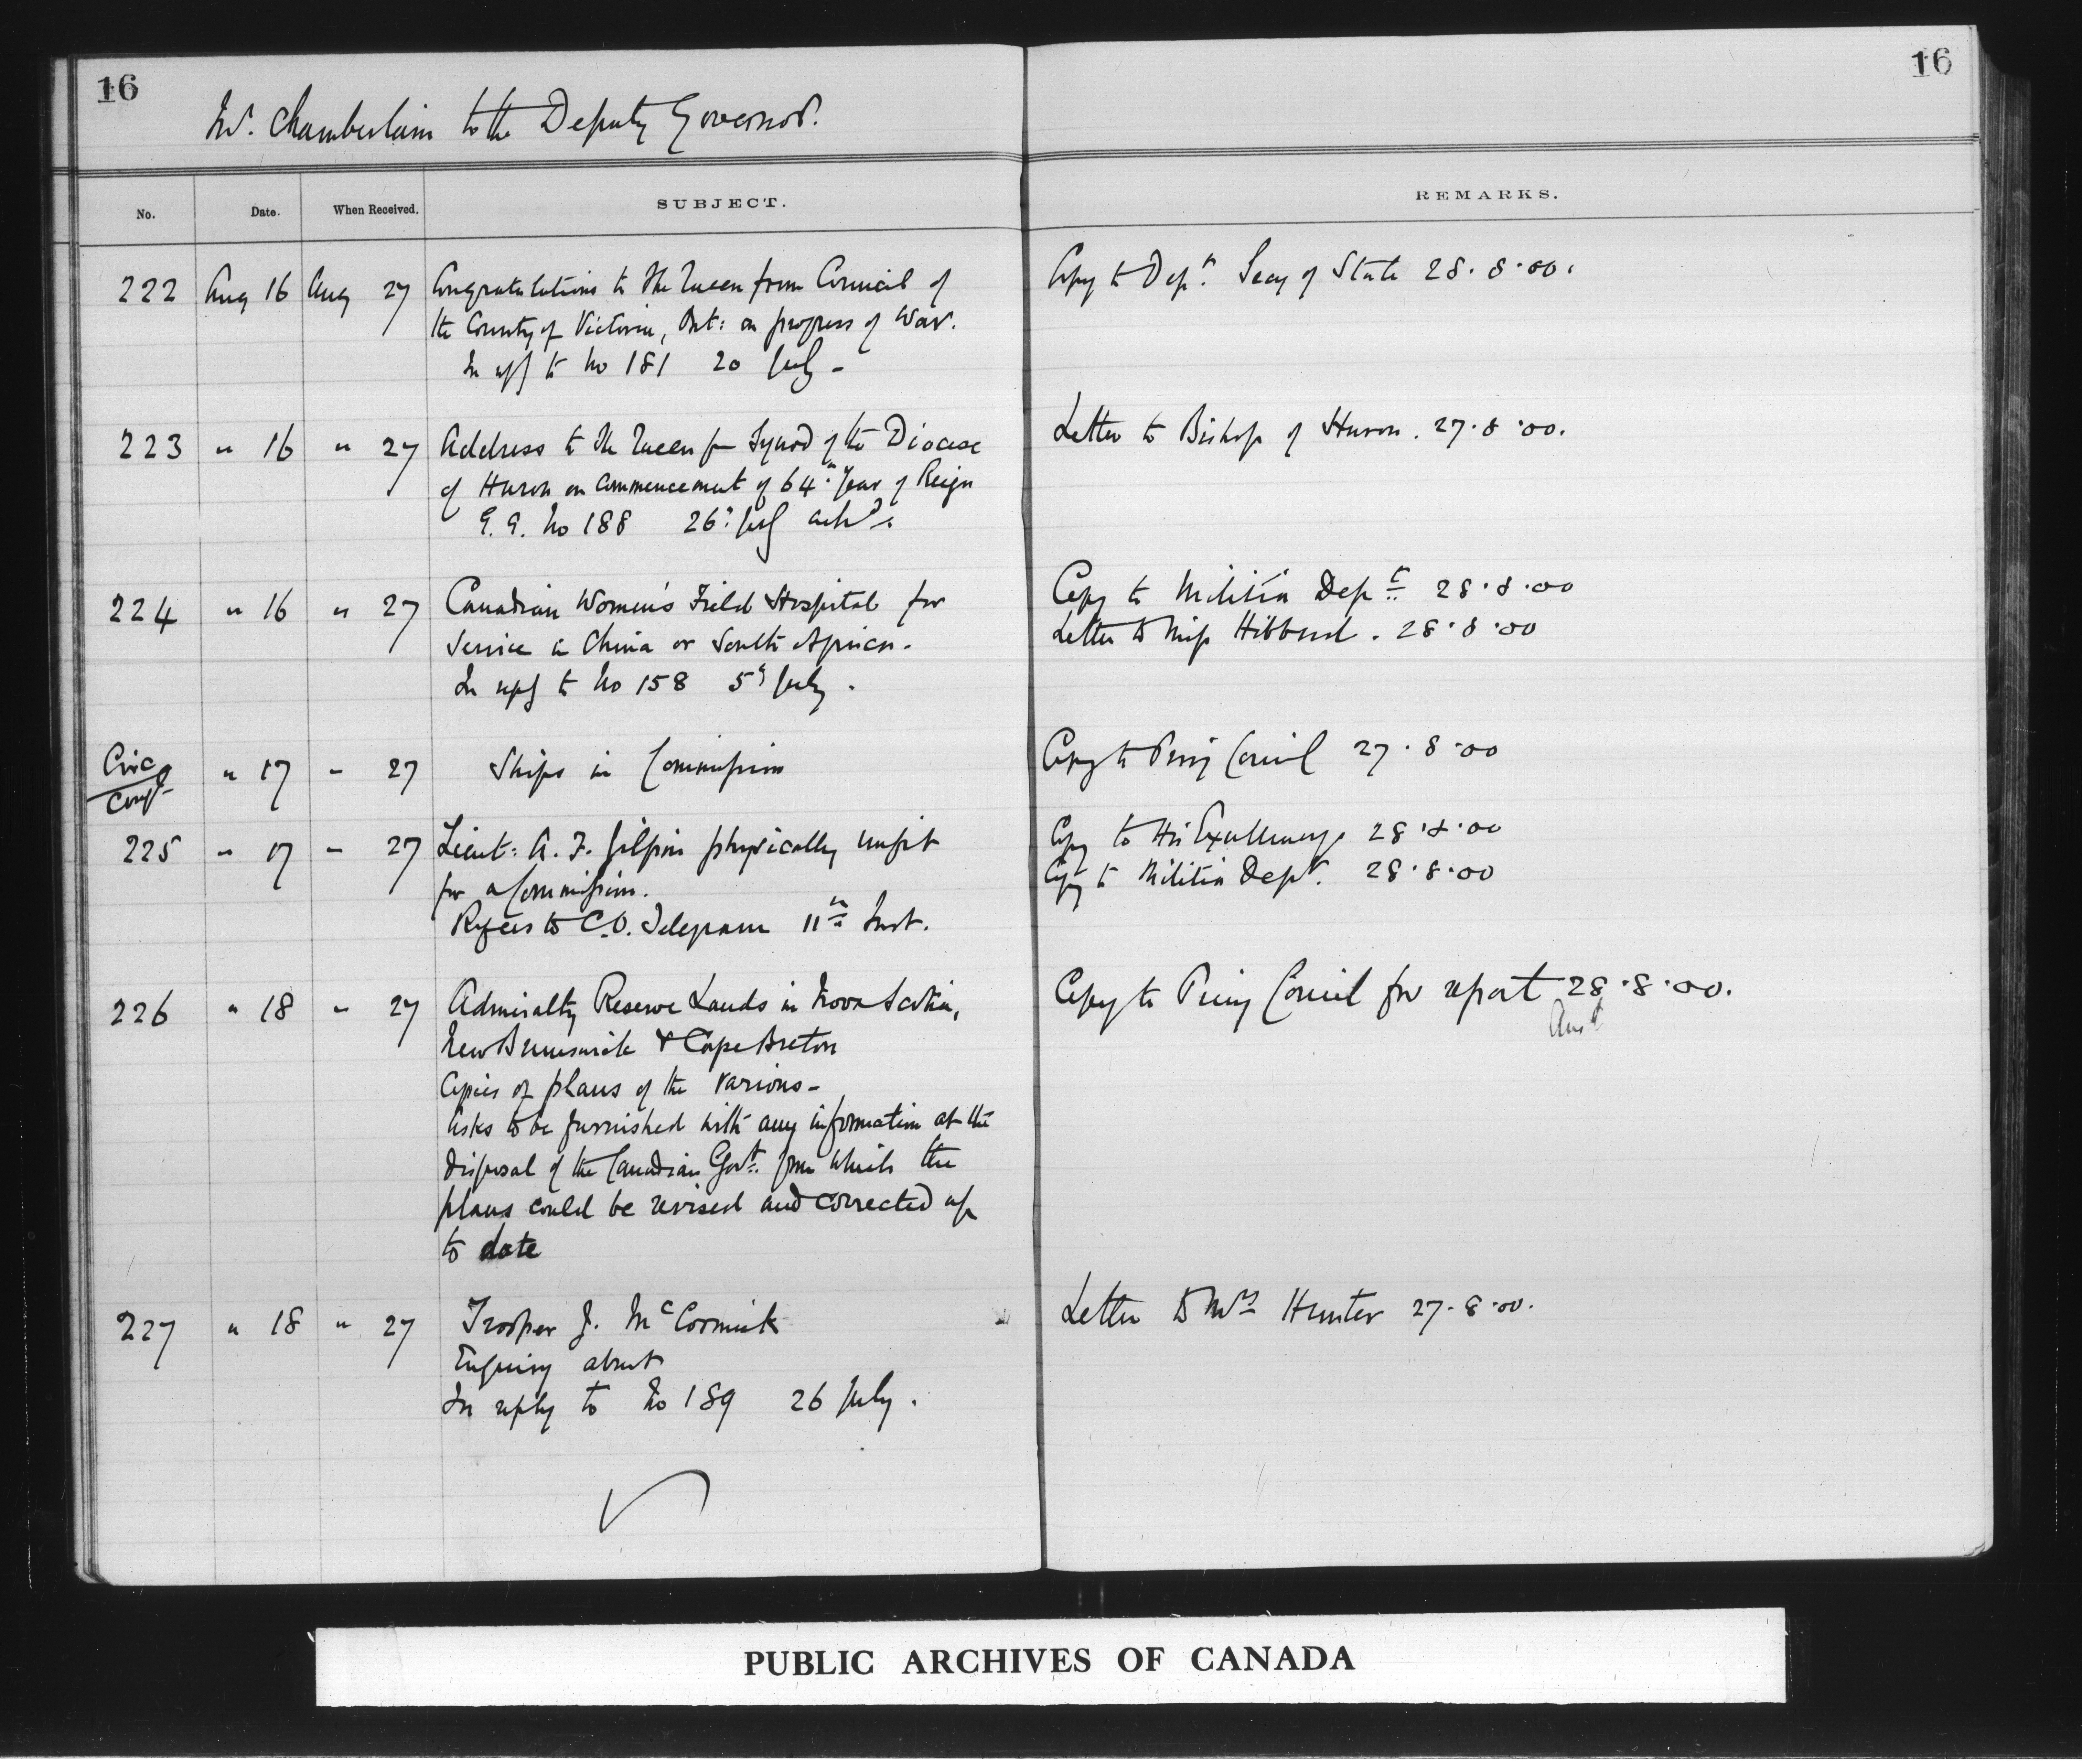 16
16
Mr. Chamberlain to the Deputy Governor.
No. Date. When Received. SUBJECT. REMARKS.
222 Aug 16 Aug 27 Congratulations to The Queen from Council of Copy to Dept. Secy of State 28.8.00.
the County of Victoria, Ont: on progress of War.
In reply to No 181 20 July -
223 " 16 " 27 Address to The Queen fm Synod of the Diocese Letter to Bishop of Huron. 27.8.00.
of Huron on commencement of 64th Year of Reign
G. G. No 188 26: July
224 " 16 " 27 Canadian Women's Field Hospital for Copy to Militia Dept 28.8.00
Service in China or South Africa. Letter to Miss Hibbard. 28.8.00
In reply to No 158 5th July.
Circ " 17 - 27 Ships in Commission Copy to Privy Council 27.8.00
Confl
225 " 17 - 27 Lieut: A. F. Gilpin physically unfit Copy to His Excellency 28.8.00
for a Commission. Copy to Militia Dept. 28.8.00
Refers to C.O. Telegram 11th Inst.
226 " 18 " 27 Admiralty Reserve Lands in Nova Scotia, Copy to Privy Council for report 28.8.00.
New Brunswick & Cape Breton Ansd
Copies of plans of the various -
Asks to be furnished with any information at the
disposal of the Canadian Govt. from which the
plans could be revised and corrected up
to date
227 " 18 " 27 Trooper J. McCormick Letter to Mrs Hunter 27.8.00.
Enquiry about
In reply to No 189 26 July.
PUBLIC ARCHIVES OF CANADA